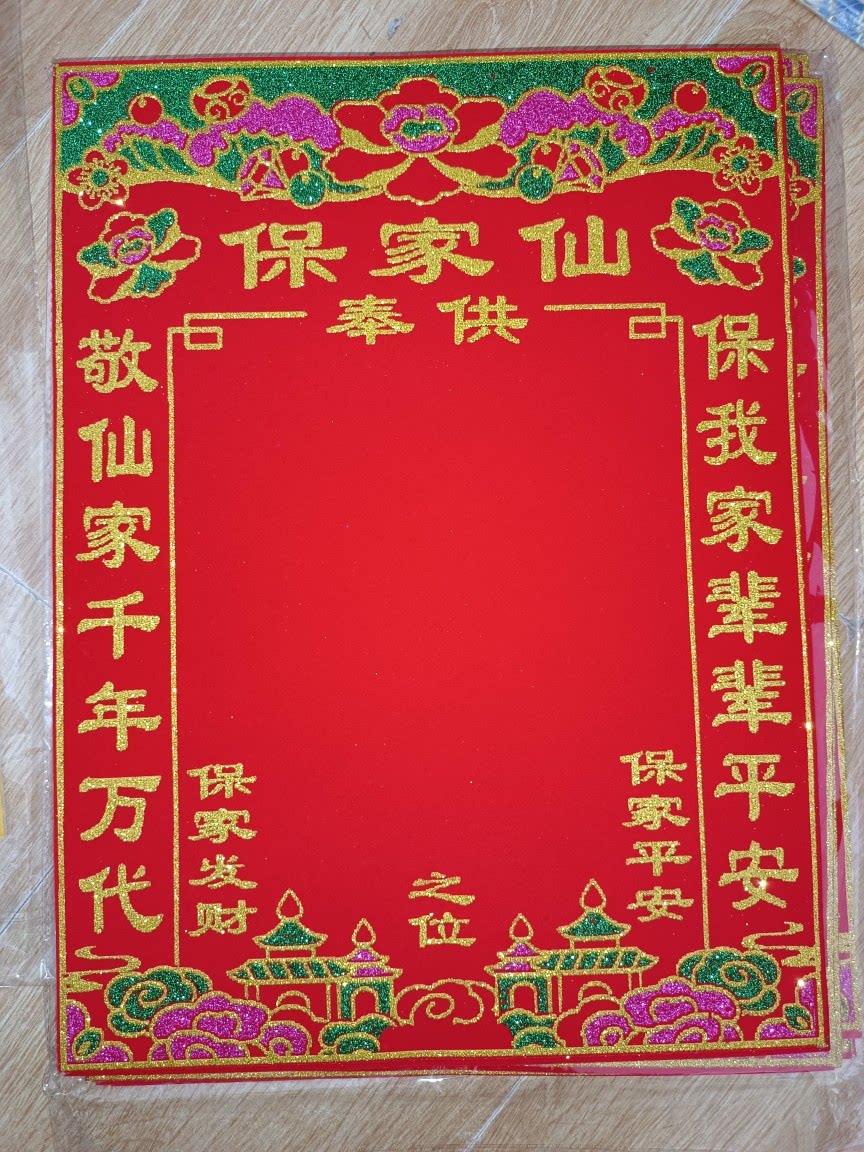 保家仙
奉供
保我家辈辈平安
敬仙家千年万代
保家平安
保家发财
之位